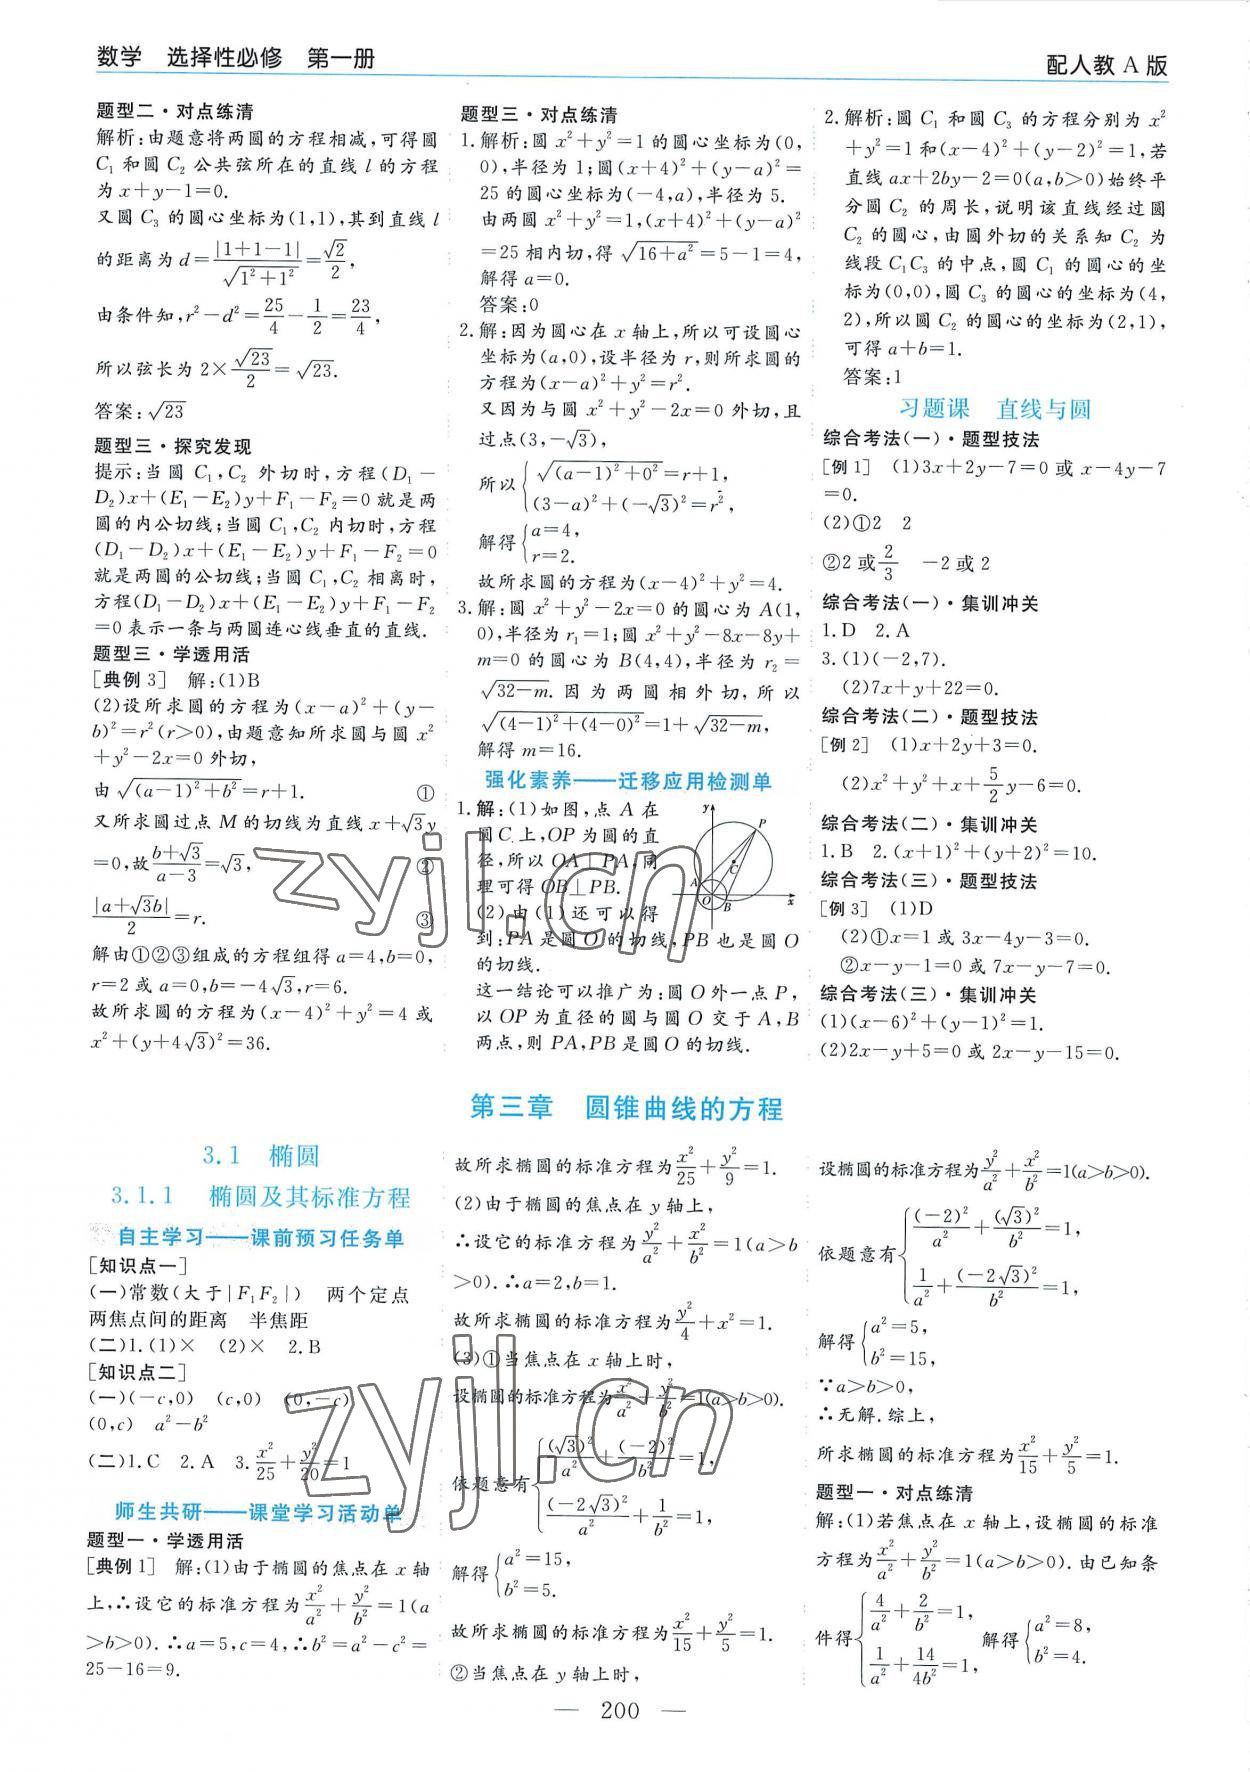 数学　选择性必修　第一册
配人教 A 版
题型二·对点练清
解析:由题意将两圆的方程相减,可得圆
C₁ 和圆 C₂ 公共弦所在的直线 l 的方程
为 x+y−1=0.
又圆 C₃ 的圆心坐标为(1,1),其到直线 l
的距离为 d=|1+1−1|/√(1²+1²)=√2/2,
由条件知,r²−d²=25/4−1/2=23/4,
所以弦长为 2×√23/2=√23.
答案:√23
题型三·探究发现
提示:当圆 C₁,C₂ 外切时,方程(D₁−
D₂)x+(E₁−E₂)y+F₁−F₂=0 就是两
圆的内公切线;当圆 C₁,C₂ 内切时,方程
(D₁−D₂)x+(E₁−E₂)y+F₁−F₂=0
就是两圆的公切线;当圆 C₁,C₂ 相离时,
方程(D₁−D₂)x+(E₁−E₂)y+F₁−F₂
=0 表示一条与两圆连心线垂直的直线.
题型三·学透用活
[典例 3]　解:(1)B
(2)设所求圆的方程为(x−a)²+(y−
b)²=r²(r>0),由题意知所求圆与圆 x²
+y²−2x=0 外切,
由 √((a−1)²+b²)=r+1.　①
又所求圆过点 M 的切线为直线 x+√3y
=0,故(b+√3)/(a−3)=√3,　②
|a+√3b|/2=r.　③
解由①②③组成的方程组得 a=4,b=0,
r=2 或 a=0,b=−4√3,r=6.
故所求圆的方程为(x−4)²+y²=4 或
x²+(y+4√3)²=36.
题型三·对点练清
1.解析:圆 x²+y²=1 的圆心坐标为(0,
0),半径为 1;圆(x+4)²+(y−a)²=
25 的圆心坐标为(−4,a),半径为 5.
由两圆 x²+y²=1,(x+4)²+(y−a)²
=25 相内切,得 √(16+a²)=5−1=4,
解得 a=0.
答案:0
2.解:因为圆心在 x 轴上,所以可设圆心
坐标为(a,0),设半径为 r,则所求圆的
方程为(x−a)²+y²=r².
又因为与圆 x²+y²−2x=0 外切,且
过点(3,−√3),
所以{√((a−1)²+0²)=r+1,
(3−a)²+(−√3)²=r²,
解得{a=4,
r=2.
故所求圆的方程为(x−4)²+y²=4.
3.解:圆 x²+y²−2x=0 的圆心为 A(1,
0),半径为 r₁=1;圆 x²+y²−8x−8y+
m=0 的圆心为 B(4,4),半径为 r₂=
√(32−m). 因为两圆相外切,所以
√((4−1)²+(4−0)²)=1+√(32−m),
解得 m=16.
强化素养——迁移应用检测单
1.解:(1)如图,点 A 在
圆 C 上,OP 为圆的直
径,所以 OA⊥PA,同
理可得 OB⊥PB.
y
P
C
A
O
B
x
(2)由(1)还可以得
到:PA 是圆 O 的切线,PB 也是圆 O
的切线.
这一结论可以推广为:圆 O 外一点 P,
以 OP 为直径的圆与圆 O 交于 A,B
两点,则 PA,PB 是圆 O 的切线.
2.解析:圆 C₁ 和圆 C₃ 的方程分别为 x²
+y²=1 和(x−4)²+(y−2)²=1,若
直线 ax+2by−2=0(a,b>0)始终平
分圆 C₂ 的周长,说明该直线经过圆
C₂ 的圆心,由圆外切的关系知 C₂ 为
线段 C₁C₃ 的中点,圆 C₁ 的圆心的坐
标为(0,0),圆 C₃ 的圆心的坐标为(4,
2),所以圆 C₂ 的圆心的坐标为(2,1),
可得 a+b=1.
答案:1
习题课　直线与圆
综合考法(一)·题型技法
[例 1]　(1)3x+2y−7=0 或 x−4y−7
=0.
(2)①2　2
②2 或 2/3　−2 或 2
综合考法(一)·集训冲关
1.D　2.A
3.(1)(−2,7).
(2)7x+y+22=0.
综合考法(二)·题型技法
[例 2]　(1)x+2y+3=0.
(2)x²+y²+x+5/2y−6=0.
综合考法(二)·集训冲关
1.B　2.(x+1)²+(y+2)²=10.
综合考法(三)·题型技法
[例 3]　(1)D
(2)①x=1 或 3x−4y−3=0.
②x−y−1=0 或 7x−y−7=0.
综合考法(三)·集训冲关
(1)(x−6)²+(y−1)²=1.
(2)2x−y+5=0 或 2x−y−15=0.
第三章　圆锥曲线的方程
3.1　椭圆
3.1.1　椭圆及其标准方程
自主学习——课前预习任务单
[知识点一]
(一)常数(大于|F₁F₂|)　两个定点
两焦点间的距离　半焦距
(二)1.(1)×　(2)×　2.B
[知识点二]
(一)(−c,0)　(c,0)　(0,−c)
(0,c)　a²−b²
(二)1.C　2.A　3.x²/25+y²/20=1
师生共研——课堂学习活动单
题型一·学透用活
[典例 1]　解:(1)由于椭圆的焦点在 x 轴
上,∴设它的标准方程为x²/a²+y²/b²=1(a
>b>0).∴a=5,c=4,∴b²=a²−c²=
25−16=9.
故所求椭圆的标准方程为x²/25+y²/9=1.
(2)由于椭圆的焦点在 y 轴上,
∴设它的标准方程为y²/a²+x²/b²=1(a>b
>0).∴a=2,b=1.
故所求椭圆的标准方程为y²/4+x²=1.
(3)①当焦点在 x 轴上时,
设椭圆的标准方程为x²/a²+y²/b²=1(a>b>0).
依题意有{(√3)²/a²+(−2)²/b²=1,
(−2√3)²/a²+1/b²=1,
解得{a²=15,
b²=5.
故所求椭圆的标准方程为x²/15+y²/5=1.
②当焦点在 y 轴上时,
设椭圆的标准方程为y²/a²+x²/b²=1(a>b>0).
依题意有{(−2)²/a²+(√3)²/b²=1,
1/a²+(−2√3)²/b²=1,
解得{a²=5,
b²=15,
∵a>b>0,
∴无解.综上,
所求椭圆的标准方程为x²/15+y²/5=1.
题型一·对点练清
解:(1)若焦点在 x 轴上,设椭圆的标准
方程为x²/a²+y²/b²=1(a>b>0). 由已知条
件得{4/a²+2/b²=1,
1/a²+14/4b²=1,
解得{a²=8,
b²=4.
— 200 —
zyjl.cn
zyjl.cn